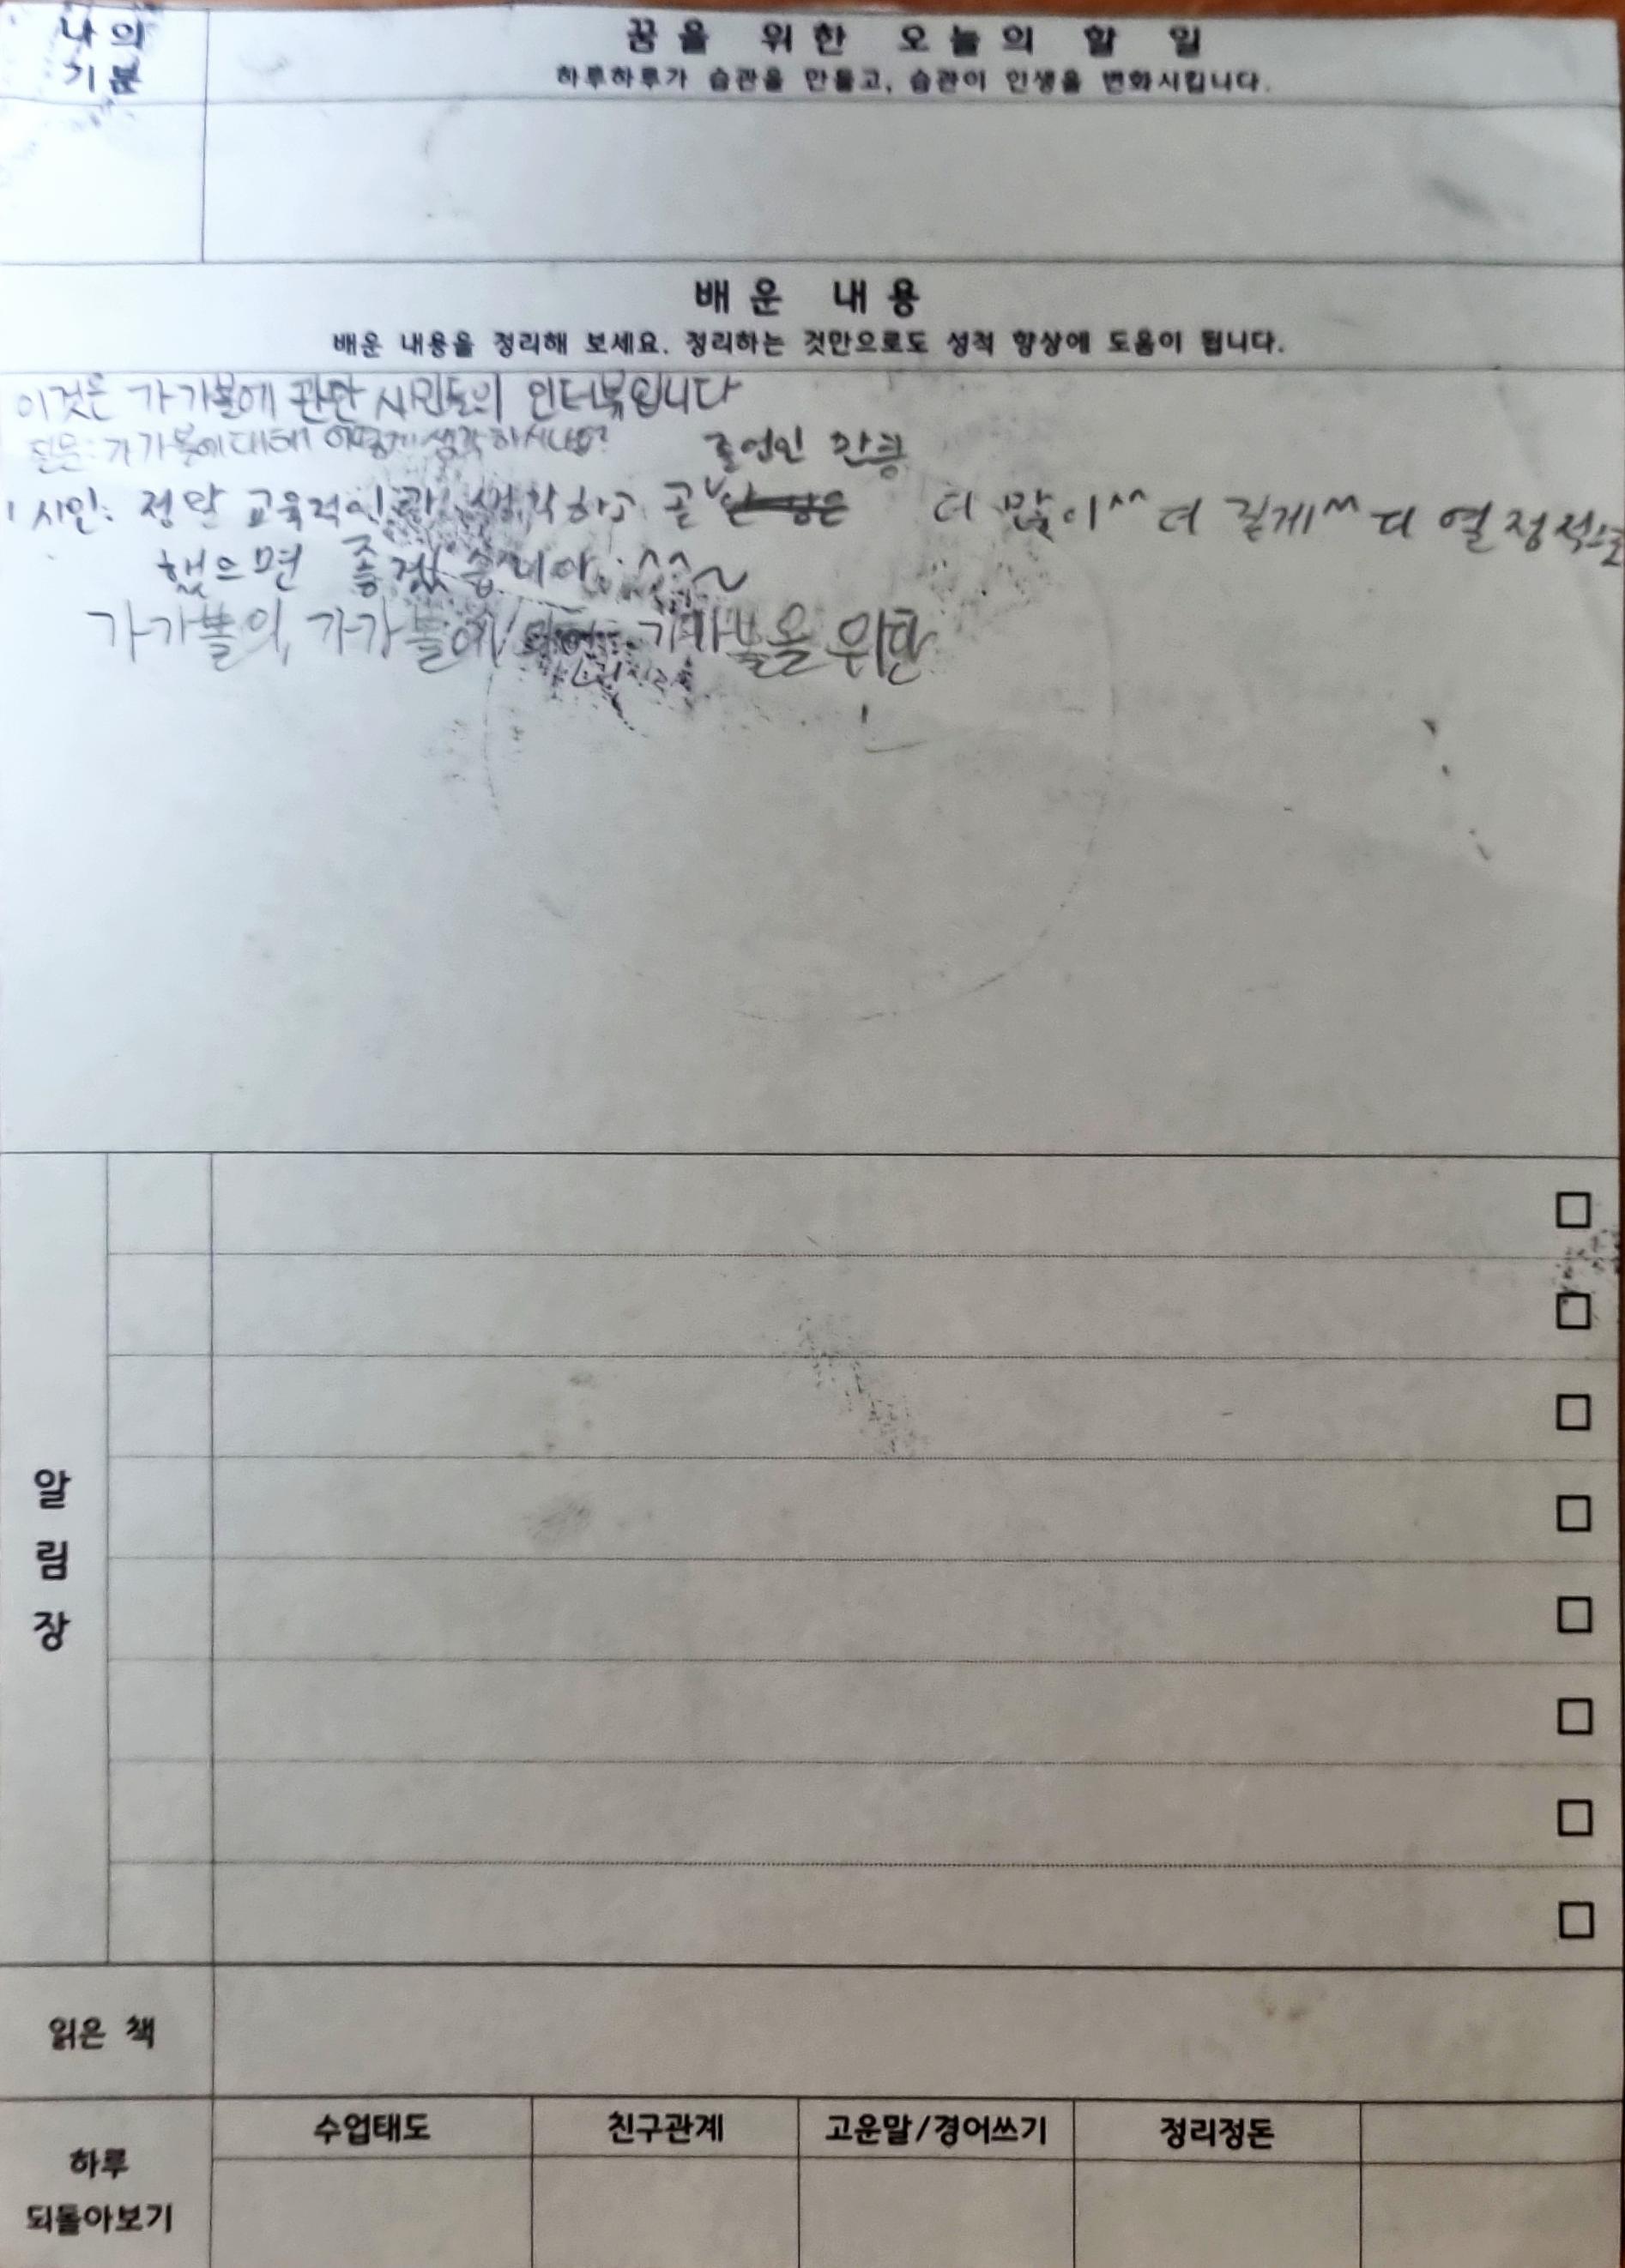 나의
기분
꿈을 위한 오늘의 할 일
하루하루가 습관을 만들고, 습관이 인생을 변화시킵니다.
배운 내용
배운 내용을 정리해 보세요. 정리하는 것만으로도 성적 향상에 도움이 됩니다.
이것은 가가볼에 관한 시민들의 인터뷰입니다
질문: 가가볼에 대해 어떻게 생각하시나요?
졸업인 만큼
1 시민: 정말 교육적인 생각하고 곧 더 많이^^ 더 길게^^ 더 열정적으로
했으면 좋겠습니다. ^^~
가가볼의, 가가볼에 가가볼을 위한
알림장
읽은 책
하루
되돌아보기
수업태도 친구관계 고운말/경어쓰기 정리정돈